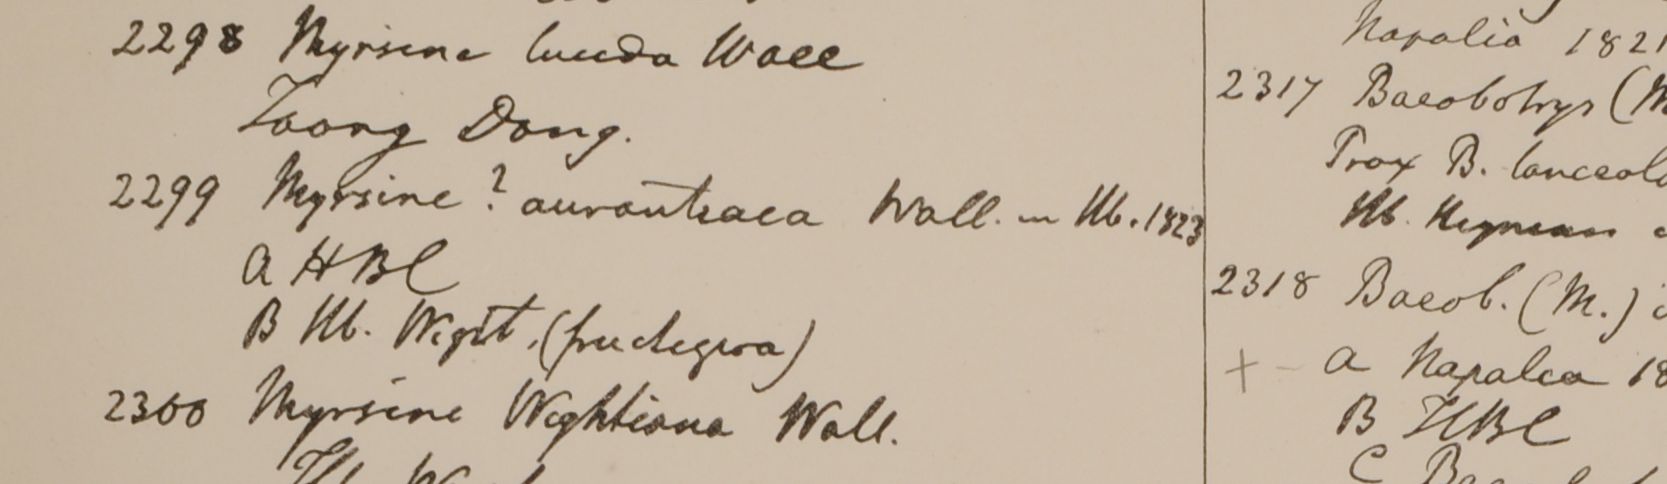 2298 Myrsine lucida Wall
Taong Dong.
2299 Myrsine ? aurantiaca Wall. in Hb. 1823
a HBC
B Hb. Wight. (fructigera)
2300 Myrsine Wightiana Wall.
Hb.
Napalia 1821
2317 Baeobotrys (M
Prox B. lanceola
Hb. Heynean
2318 Baeob. (M.)
+ - a Napalea 18
B HBC
C